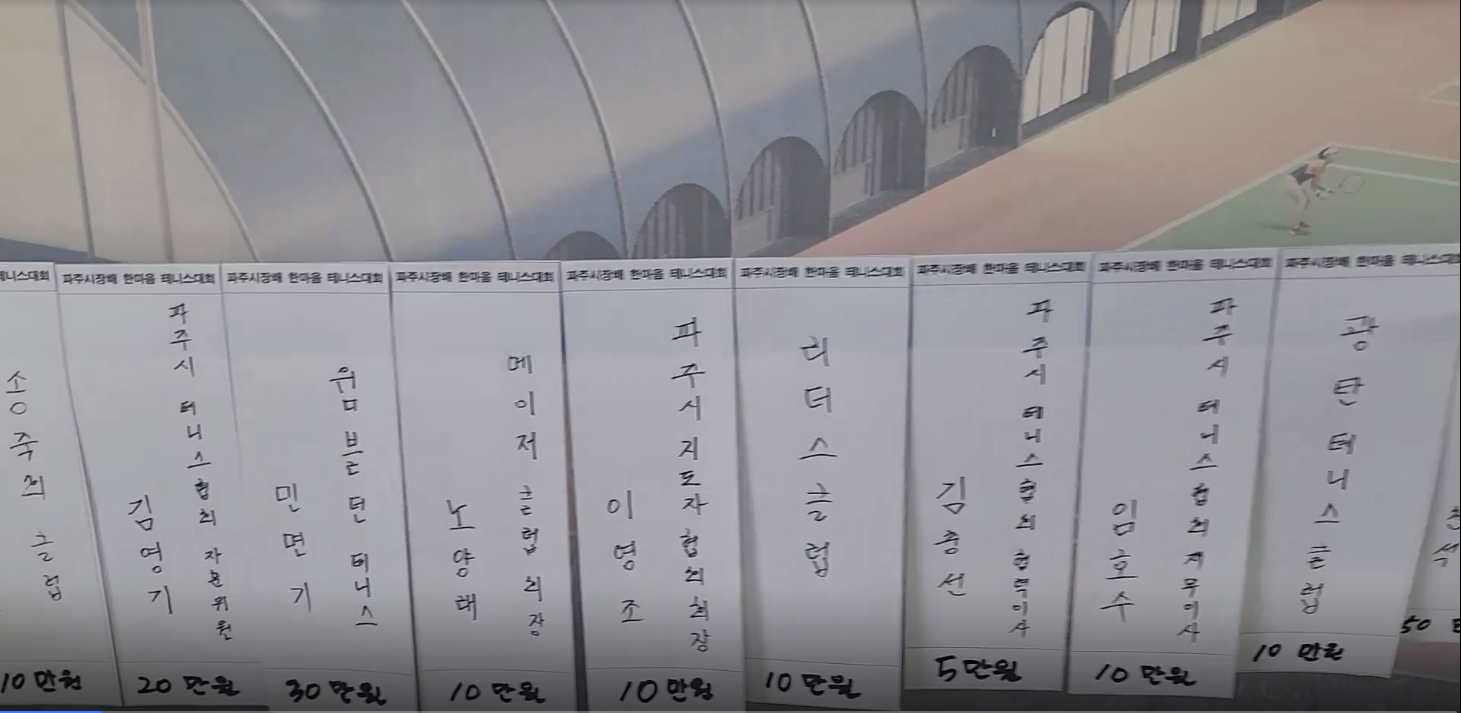 테니스대회
송죽회 클럽
10만원
파주시장배 한마음 테니스대회
파주시 테니스협회 자문위원
김영기
20만원
파주시장배 한마음 테니스대회
윔브른던 테니스
민면기
30만원
파주시장배 한마음 테니스대회
메이저클럽회장
노양래
10만원
파주시장배 한마음 테니스대회
파주시지도자협회회장
이영조
10만원
파주시장배 한마음 테니스대회
리더스클럽
10만원
파주시장배 한마음 테니스대회
파주시 테니스협회 협력이사
김종선
5만원
파주시장배 한마음 테니스대회
파주시 테니스협회 재무이사
임호수
10만원
파주시장배 한마음 테니스대회
광탄테니스클럽
10만원
50